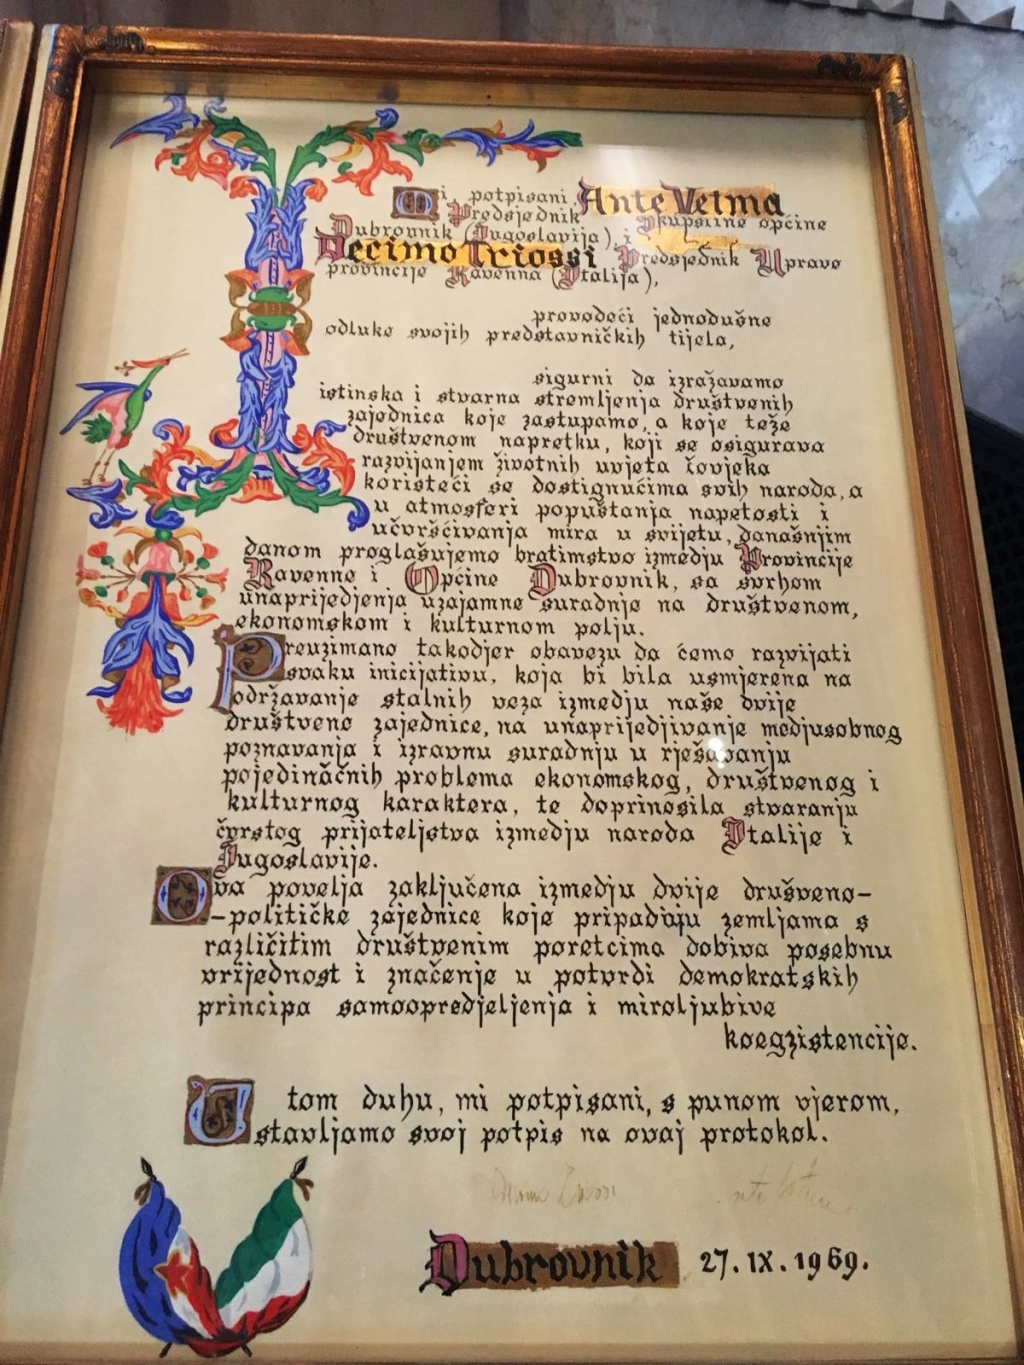 Mi potpisani, Ante Velma
Predsjednik Skupštine općine
Dubrovnik (Jugoslavija), i
Decimo Triossi Predsjednik Uprave
provincije Ravenna (Italija),
provodeći jednodušne
odluke svojih predstavničkih tijela,
sigurni da izražavamo
istinska i stvarna stremljenja društvenih
zajednica koje zastupamo, a koje teže
društvenom napretku, koji se osigurava
razvijanjem životnih uvjeta čovjeka
koristeći se dostignućima svih naroda, a
u atmosferi popuštanja napetosti i
učvršćivanja mira u svijetu, današnjim
danom proglašujemo bratimstvo izmedju Provincije
Ravenne i Općine Dubrovnik, sa svrhom
unaprijedjenja uzajamne suradnje na društvenom,
ekonomskom i kulturnom polju.
Preuzimamo takodjer obavezu da ćemo razvijati
svaku inicijativu, koja bi bila usmjerena na
održavanje stalnih veza izmedju naše dvije
društvene zajednice, na unaprijedjivanje medjusobnog
poznavanja i izravnu suradnju u rješavanju
pojedinačnih problema ekonomskog, društvenog i
kulturnog karaktera, te doprinosila stvaranju
čvrstog prijateljstva izmedju naroda Italije i
Jugoslavije.
Ova povelja zaključena izmedju dvije drušveno-
-političke zajednice koje pripadaju zemljama s
različitim društvenim poretcima dobiva posebnu
vrijednost i značenje u potvrdi demokratskih
principa samoopredjeljenja i miroljubive
koegzistencije.
U tom duhu, mi potpisani, s punom vjerom,
stavljamo svoj potpis na ovaj protokol.
Dubrovnik 27. IX. 1969.